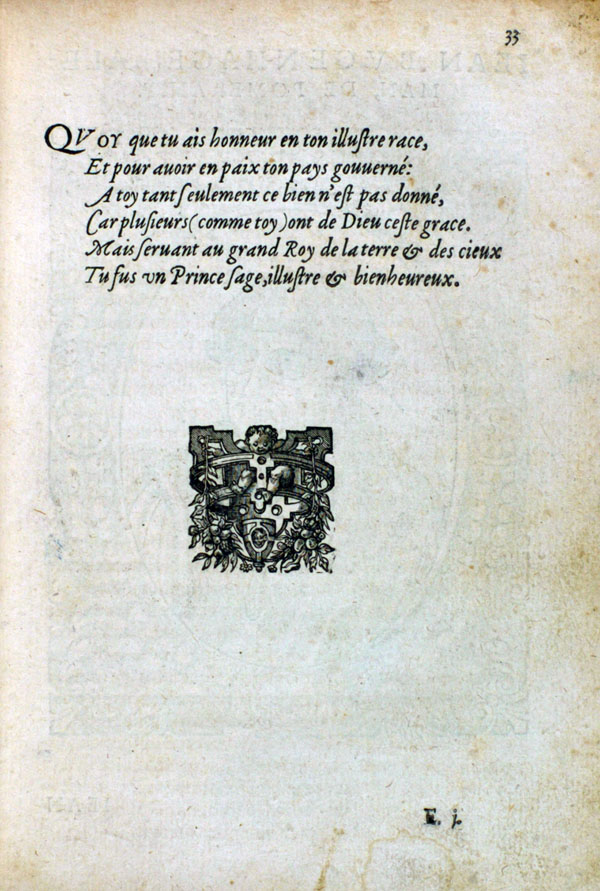 33
QVOY que tu ais honneur en ton illuſtre race,
Et pour auoir en paix ton pays gouuerné:
A toy tant ſeulement ce bien n'eſt pas donné,
Car pluſieurs (comme toy) ont de Dieu ceſte grace.
Mais ſeruant au grand Roy de la terre & des cieux
Tu fus vn Prince ſage, illuſtre & bienheureux.
E. j.